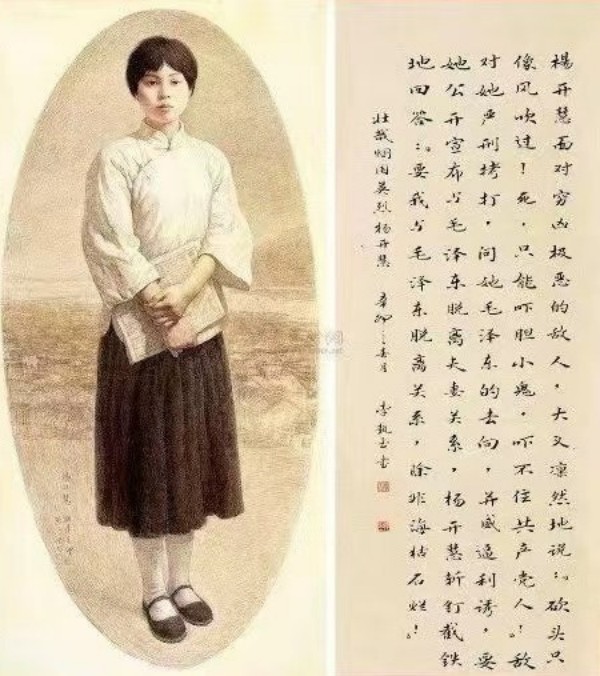 楊开慧面对穷凶极恶的敌人，大义凛然地说：砍头只
像风吹过！死，只能吓胆小鬼，吓不住共产党人！敌
对她严刑拷打，问她毛泽东的去向，并威逼利诱，要
她公开宣布与毛泽东脱离夫妻关系，杨开慧斩钉截铁
地回答：要我与毛泽东脱离关系，除非海枯石烂！
壮哉 英烈杨开慧 辛卯之春月 李 书
杨开慧